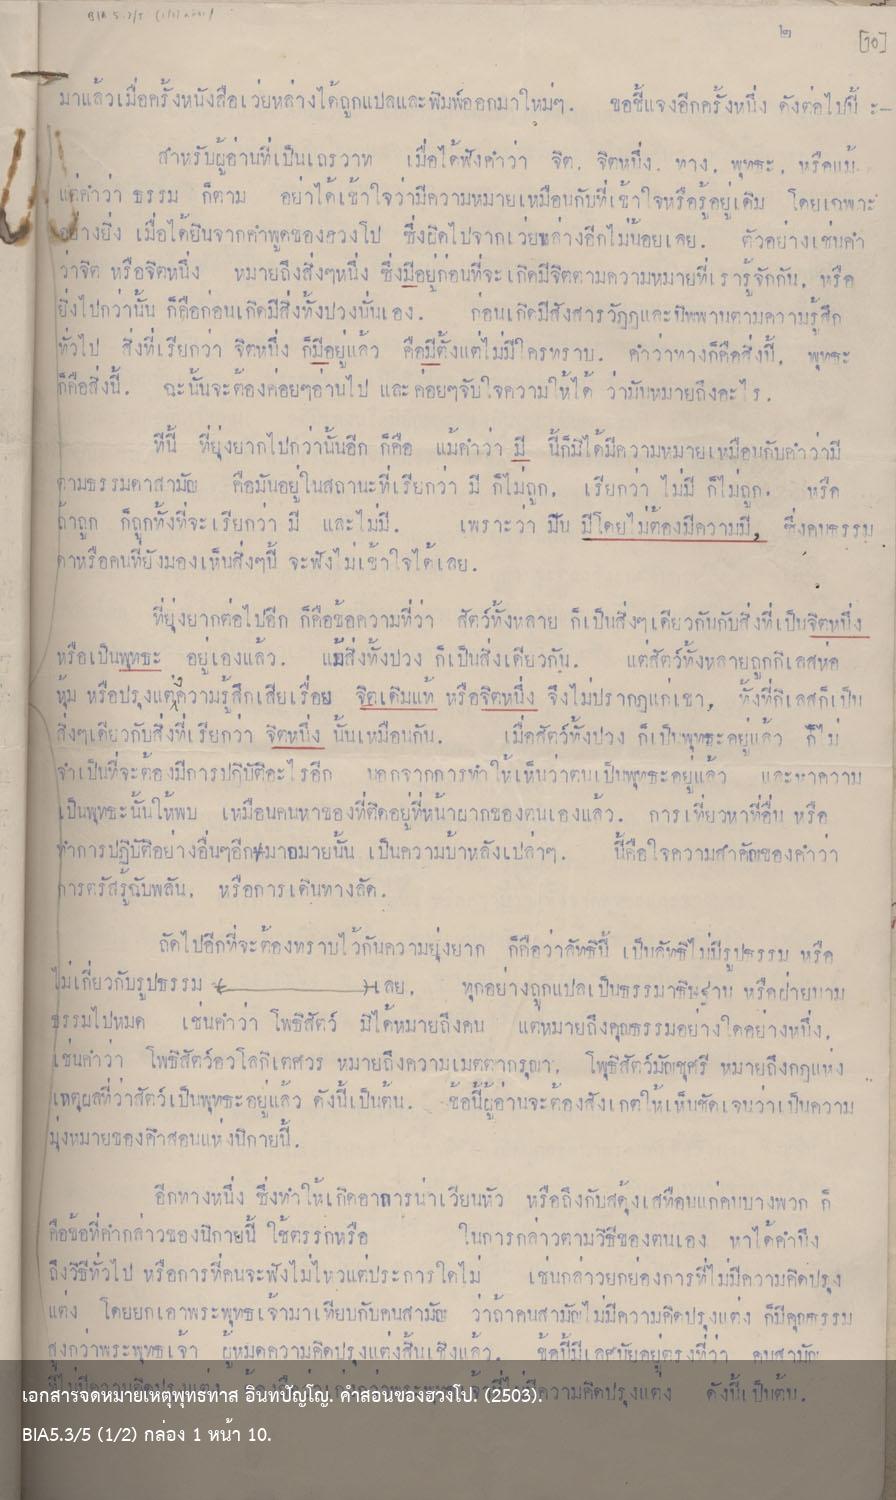 BIA 5.3/5 (1/2) กล่อง 1
๒
[10]
มาแล้วเมื่อครั้งหนังสือเว่ยหล่างได้ถูกแปลและพิมพ์ออกมาใหม่ๆ. ขอชี้แจงอีกครั้งหนึ่ง ดังต่อไปนี้ :—
สำหรับผู้อ่านที่เป็นเถรวาท เมื่อได้ฟังคำว่า จิต, จิตหนึ่ง, ทาง, พุทธะ, หรือแม้
แต่คำว่า ธรรม ก็ตาม อย่าได้เข้าใจว่ามีความหมายเหมือนกับที่เข้าใจหรือรู้อยู่เดิม โดยเฉพาะ
อย่างยิ่ง เมื่อได้ยินจากคำพูดของฮวงโป ซึ่งผิดไปจากเว่ยหล่างอีกไม่น้อยเลย. ตัวอย่างเช่นคำ
ว่าจิต หรือจิตหนึ่ง หมายถึงสิ่งๆหนึ่ง ซึ่งมีอยู่ก่อนที่จะเกิดมีจิตตามความหมายที่เรารู้จักกัน, หรือ
ยิ่งไปกว่านั้น ก็คือก่อนเกิดมีสิ่งทั้งปวงนั่นเอง. ก่อนเกิดมีสังสารวัฏฏและนิพพานตามความรู้สึก
ทั่วไป สิ่งที่เรียกว่า จิตหนึ่ง ก็มีอยู่แล้ว คือมีตั้งแต่ไม่มีใครทราบ. คำว่าทางก็คือสิ่งนี้, พุทธะ
ก็คือสิ่งนี้. ฉะนั้นจะต้องค่อยๆอ่านไป และค่อยๆจับใจความให้ได้ ว่ามันหมายถึงอะไร.
ทีนี้ ที่ยุ่งยากไปกว่านั้นอีก ก็คือ แม้คำว่า มี นี้ก็มิได้มีความหมายเหมือนกับคำว่ามี
ตามธรรมดาสามัญ คือมันอยู่ในสถานะที่เรียกว่า มี ก็ไม่ถูก, เรียกว่า ไม่มี ก็ไม่ถูก. หรือ
ถ้าถูก ก็ถูกทั้งที่จะเรียกว่า มี และไม่มี. เพราะว่า มัน มีโดยไม่ต้องมีความมี, ซึ่งคนธรรม
ดาหรือคนที่ยังมองเห็นสิ่งๆนี้ จะฟังไม่เข้าใจได้เลย.
ที่ยุ่งยากต่อไปอีก ก็คือข้อความที่ว่า สัตว์ทั้งหลาย ก็เป็นสิ่งๆเดียวกันกับสิ่งที่เป็นจิตหนึ่ง
หรือเป็นพุทธะ อยู่เองแล้ว. แม้สิ่งทั้งปวง ก็เป็นสิ่งเดียวกัน. แต่สัตว์ทั้งหลายถูกกิเลสห่อ
หุ้ม หรือปรุงแต่งความรู้สึกเสียเรื่อย จิตเดิมแท้ หรือจิตหนึ่ง จึงไม่ปรากฏแก่เขา, ทั้งที่กิเลสก็เป็น
สิ่งๆเดียวกับสิ่งที่เรียกว่า จิตหนึ่ง นั้นเหมือนกัน. เมื่อสัตว์ทั้งปวง ก็เป็นพุทธะอยู่แล้ว ก็ไม่
จำเป็นที่จะต้องมีการปฏิบัติอะไรอีก นอกจากการทำให้เห็นว่าตนเป็นพุทธะอยู่แล้ว และหาความ
เป็นพุทธะนั้นให้พบ เหมือนคนหาของที่ติดอยู่ที่หน้าผากของตนเองแล้ว. การเที่ยวหาที่อื่น หรือ
ทำการปฏิบัติอย่างอื่นๆอีกมากมายนั้น เป็นความบ้าหลังเปล่าๆ. นี้คือใจความสำคัญของคำว่า
การตรัสรู้ฉับพลัน, หรือการเดินทางลัด.
ถัดไปอีกที่จะต้องทราบไว้กันความยุ่งยาก ก็คือว่าลัทธินี้ เป็นลัทธิไม่มีรูปธรรม หรือ
ไม่เกี่ยวกับรูปธรรม เลย, ทุกอย่างถูกแปลเป็นธรรมาธิษฐาน หรือฝ่ายนาม
ธรรมไปหมด เช่นคำว่า โพธิสัตว์ มิได้หมายถึงคน แต่หมายถึงคุณธรรมอย่างใดอย่างหนึ่ง,
เช่นคำว่า โพธิสัตว์อวโลกิเตศวร หมายถึงความเมตตากรุณา, โพธิสัตว์มัญชุศรี หมายถึงกฎแห่ง
เหตุผลที่ว่าสัตว์เป็นพุทธะอยู่แล้ว ดังนี้เป็นต้น. ข้อนี้ผู้อ่านจะต้องสังเกตให้เห็นชัดเจนว่าเป็นความ
มุ่งหมายของคำสอนแห่งนิกายนี้.
อีกทางหนึ่ง ซึ่งทำให้เกิดอาการน่าเวียนหัว หรือถึงกับสดุ้งเสทือนแก่คนบางพวก ก็
คือข้อที่คำกล่าวของนิกายนี้ ใช้ตรรกหรือ ในการกล่าวตามวิธีของตนเอง หาได้คำนึง
ถึงวิธีทั่วไป หรือการที่คนจะฟังไม่ไหวแต่ประการใดไม่ เช่นกล่าวยกย่องการที่ไม่มีความคิดปรุง
แต่ง โดยยกเอาพระพุทธเจ้ามาเทียบกับคนสามัญ ว่าถ้าคนสามัญไม่มีความคิดปรุงแต่ง ก็มีคุณธรรม
สูงกว่าพระพุทธเจ้า ผู้หมดความคิดปรุงแต่งสิ้นเชิงแล้ว. ข้อนี้มีเลศนัยอยู่ตรงที่ว่า คนสามัญ
ความคิดปรุงแต่ง ดังนี้เป็นต้น.
เอกสารจดหมายเหตุพุทธทาส อินทปัญโญ. คำสอนของฮวงโป. (2503).
BIA5.3/5 (1/2) กล่อง 1 หน้า 10.